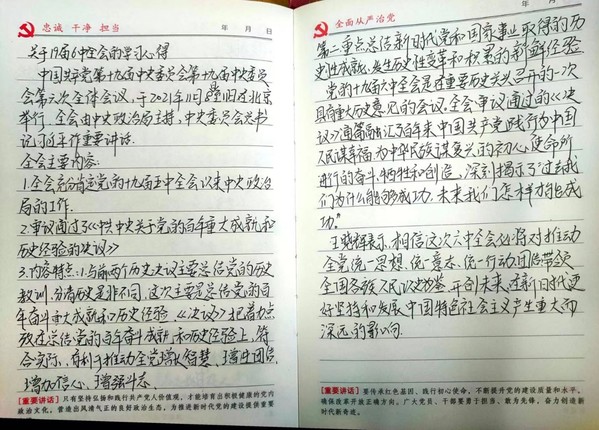 忠诚 干净 担当
年 月 日
关于19届6中全会的学习心得
中国共产党第十九届中央委员会第十九届中央委员
会第六次全体会议，于2021年11月8至11日在北京
举行，全会由中央政治局主持，中央委员会总书
记习近平作重要讲话.
全会主要内容:
1.全会充分肯定党的十九届五中全会以来中央政治
局的工作.
2.审议通过了《中共中央关于党的百年奋斗重大成就和
历史经验的决议》
3.内容特点:1.与前两个历史决议主要总结党的历史
教训,分清历史是非不同,这次主要是总结党的百
年奋斗重大成就和历史经验 《决议》把着力点
放在总结党的百年奋斗成就和历史经验上,符
合实际、有利于推动全党增长智慧、增进团结、
增加信心、增强斗志.
【重要讲话】只有坚持弘扬和践行共产党人价值观，才能培育出积极健康的党内
政治文化，营造出风清气正的良好政治生态，为推进新时代党的建设提供重要
全面从严治党
年 月 日
第二重点总结新时代党和国家事业取得的历
史性成就,发生历史性变革和积累的新鲜经验
党的十九届六中全会是在重要历史关头召开的一次
具有重大历史意义的会议.全会审议通过的《决
议》通篇贯注了百年来中国共产党践行为中国
人民谋幸福,为中华民族谋复兴的初心使命所
进行的奋斗、牺牲和创造,深刻揭示了"过去我
们为什么能够成功、未来我们怎样才能继续成
功."
王晓辉表示,相信这次六中全会必将对推动
全党统一思想、统一意志、统一行动团结带领
全国各族人民以史为鉴、开创未来,在新时代更
好坚持和发展中国特色社会主义产生重大而
深远的影响.
【重要讲话】要传承红色基因、践行初心使命，不断提升党的建设质量和水平，
确保改革开放正确方向。广大党员、干部要勇于担当、敢为先锋，奋力创造新时
代新奇迹。